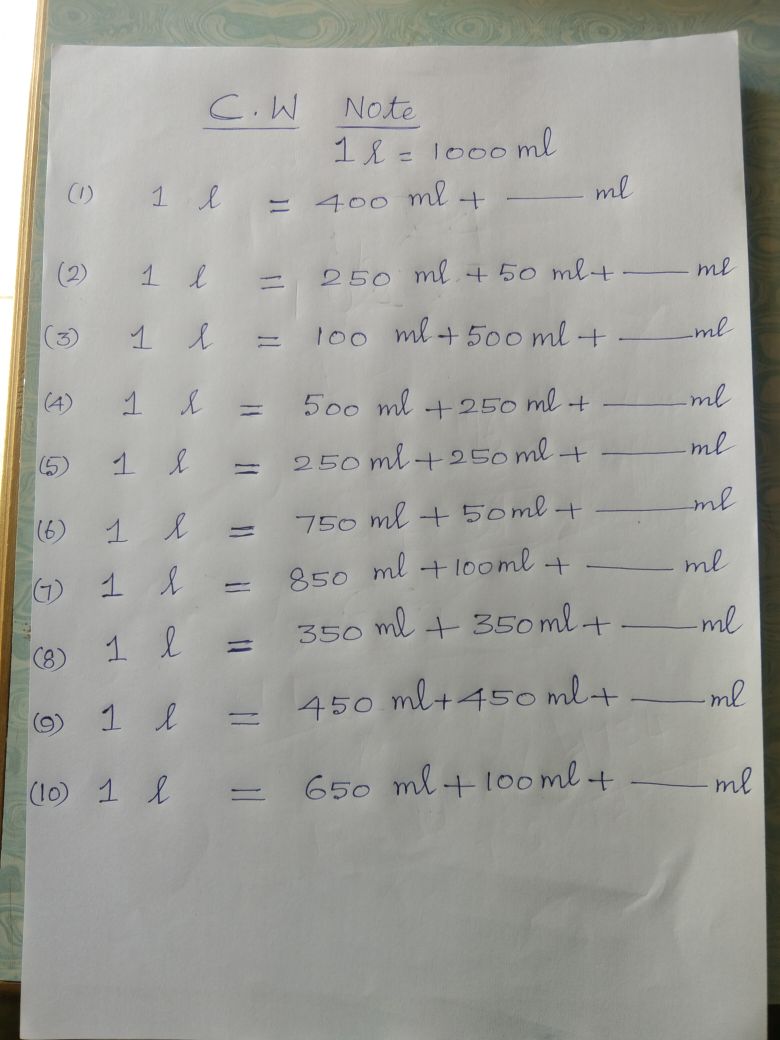 C.W Note
1 l = 1000 ml
(1) 1 l = 400 ml + ___ ml
(2) 1 l = 250 ml + 50 ml + ___ ml
(3) 1 l = 100 ml + 500 ml + ___ ml
(4) 1 l = 500 ml + 250 ml + ___ ml
(5) 1 l = 250 ml + 250 ml + ___ ml
(6) 1 l = 750 ml + 50 ml + ___ ml
(7) 1 l = 850 ml + 100 ml + ___ ml
(8) 1 l = 350 ml + 350 ml + ___ ml
(9) 1 l = 450 ml + 450 ml + ___ ml
(10) 1 l = 650 ml + 100 ml + ___ ml